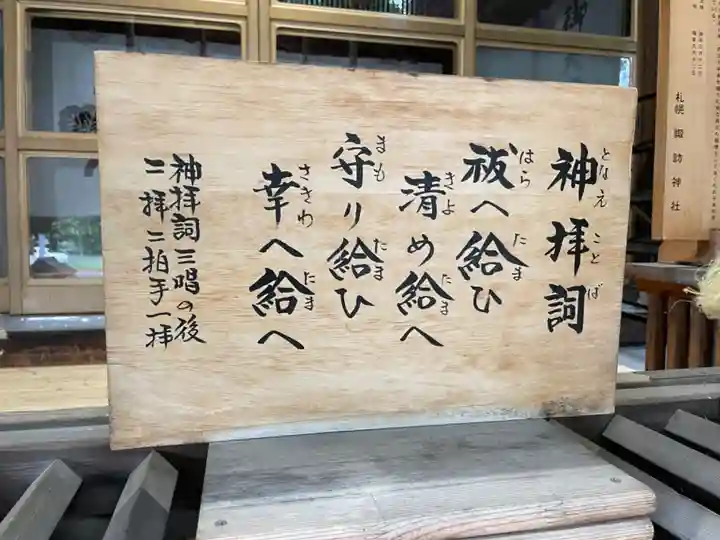 神拝詞
となえことば
祓へ給ひ
はらたま
清め給へ
きよたま
守り給ひ
まもたま
幸へ給へ
さきわたま
神拝詞三唱の後
二拝二拍手一拝
札幌諏訪神社
御